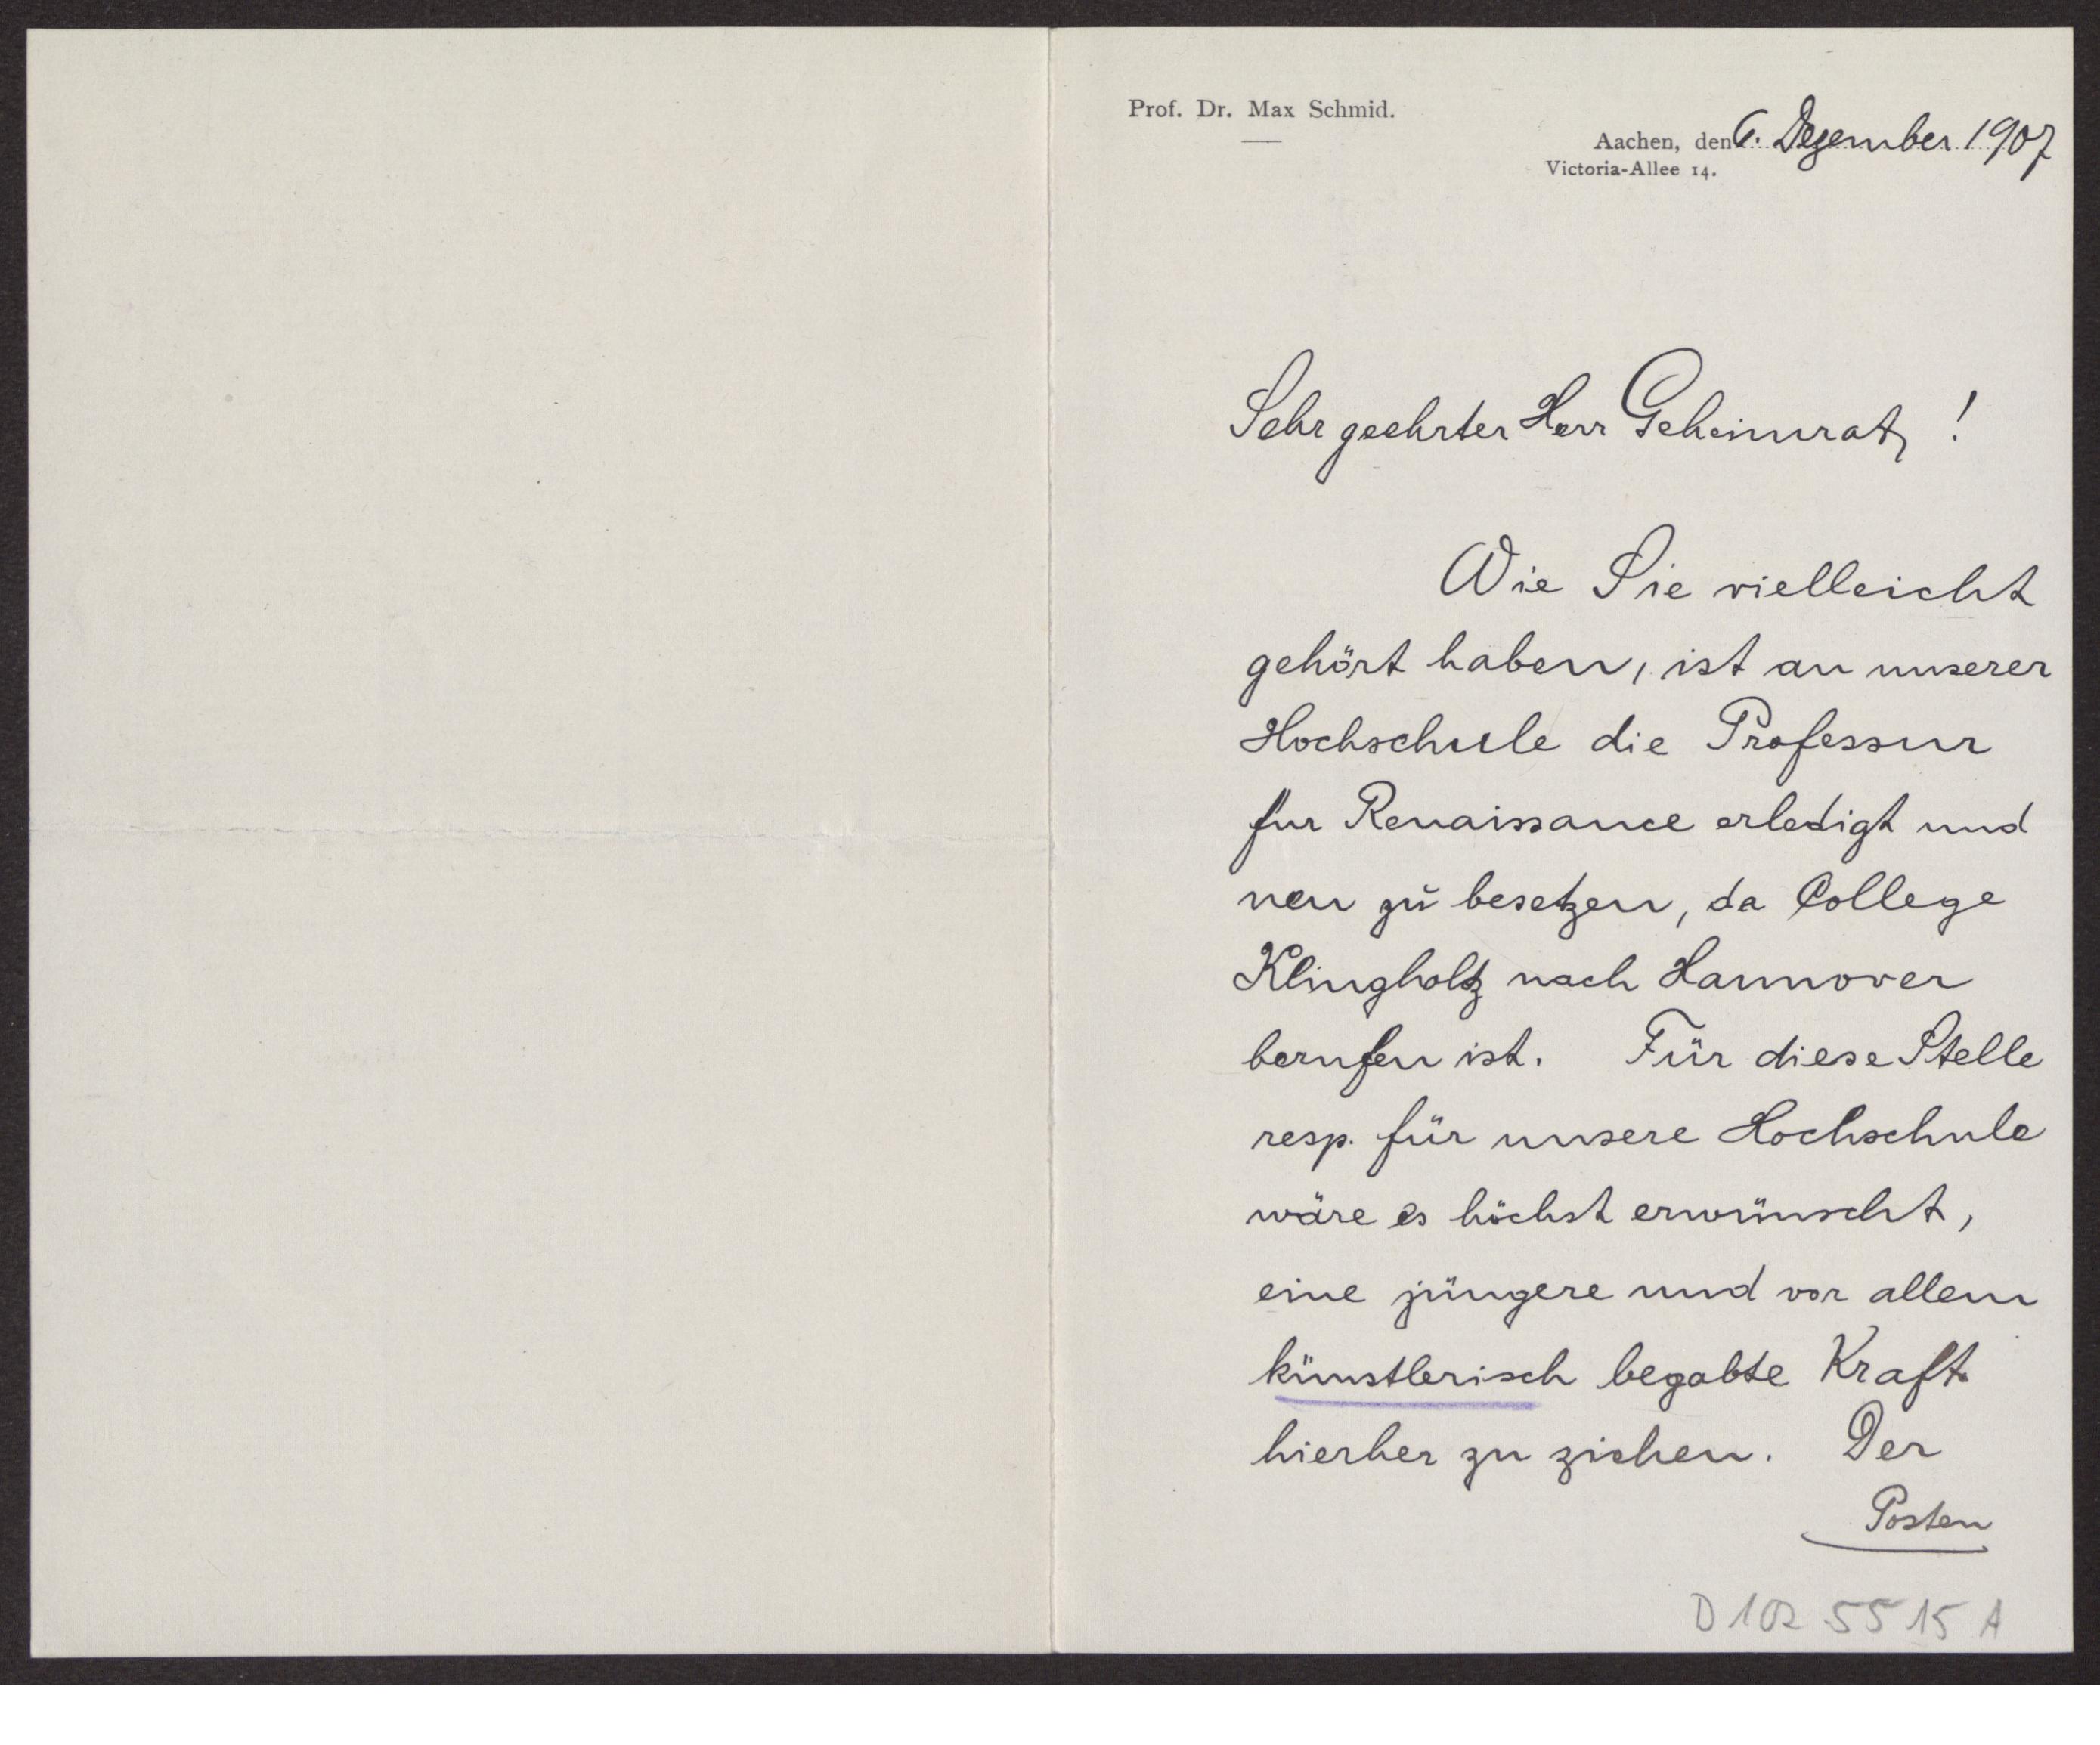 Prof. Dr. Max Schmid.
Aachen, den 6. Dezember 1907
Victoria-Allee 14.
Sehr geehrter Herr Geheimrat, !
Wie Sie vielleicht
gehört haben, ist an unserer
Hochschule die Professur
fur Renaissance erledigt und
neu zŭ besetzen, da College
Klingholz nach Hannover
berufen ist. Für diese Stelle
resp. für unsere Hochschule
wäre es höchst erwünscht,
eine jüngere und vor allem
künstlerisch begabte Kraft
hierher zu ziehen. Der
Posten
D 102 5515 A